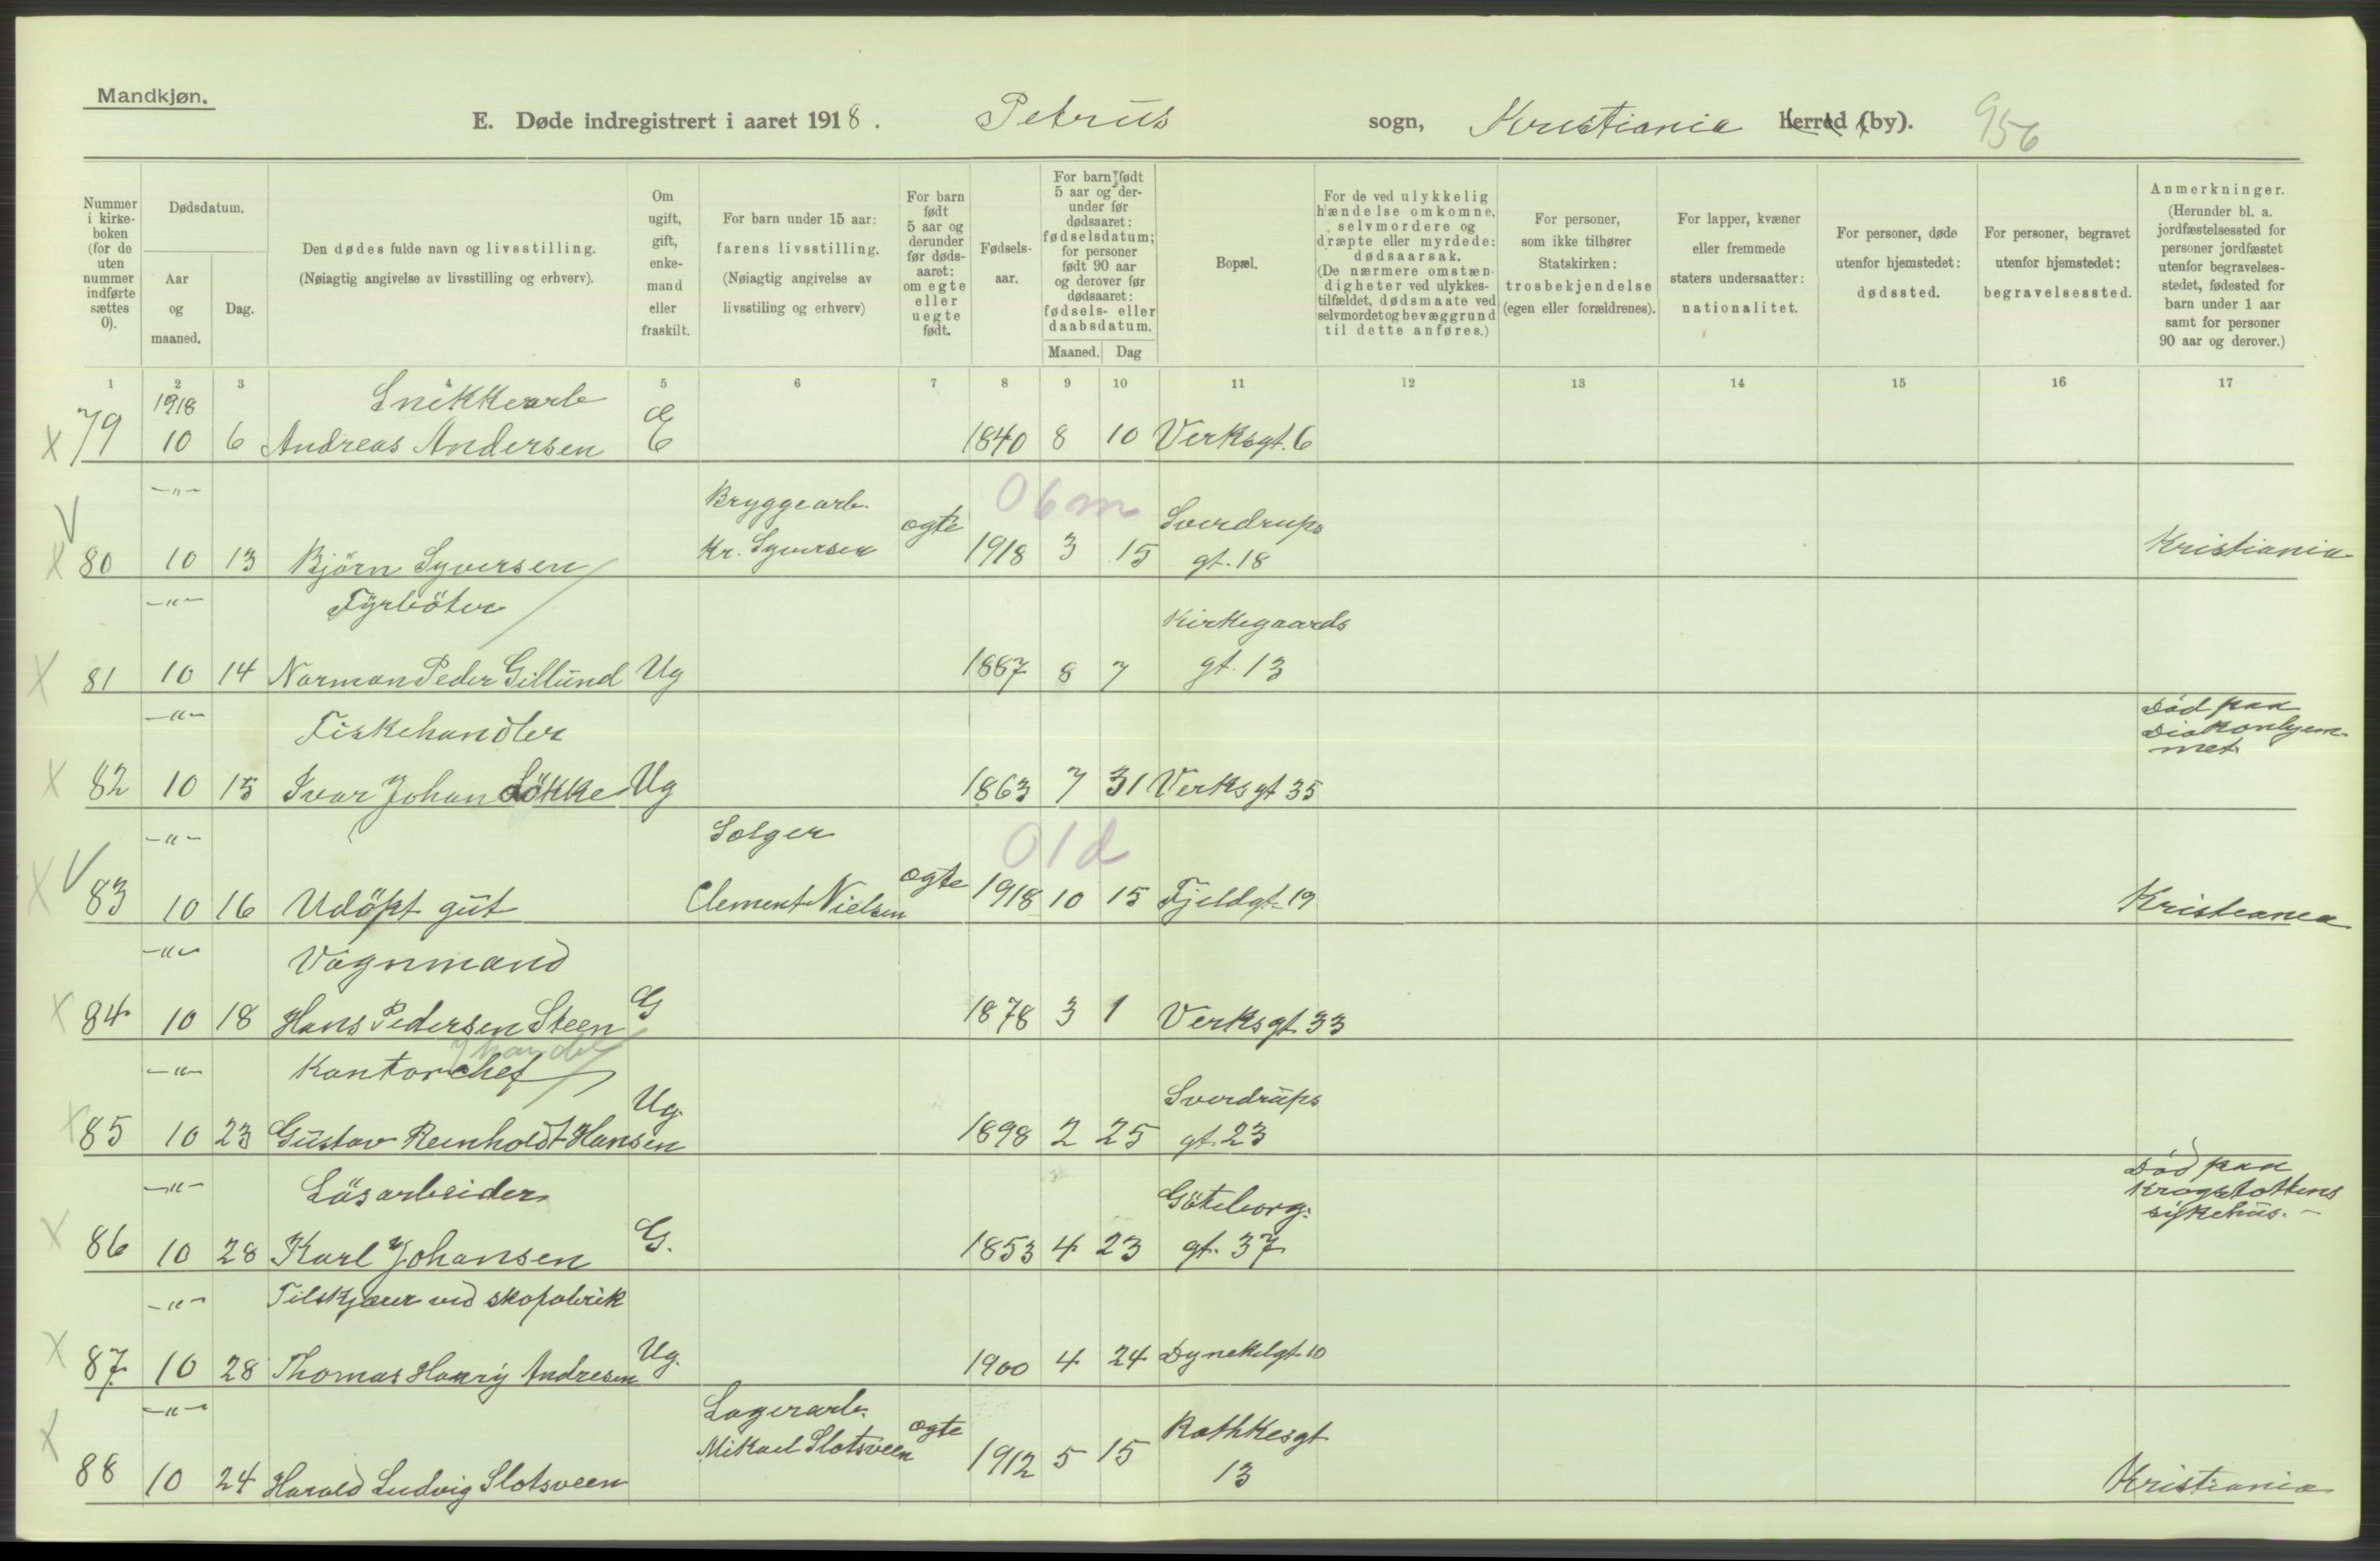 Mandkjøn.
E. Døde indregistrert i aaret 1918. Petrus sogn, Kristiania herred (by). 956
Nummer i kirkeboken (for de uten nummer indførte sættes 0).
Dødsdatum.
Aar og maaned.
Dag.
Den dødes fulde navn og livsstilling.
(Nøiagtig angivelse av livsstilling og erhverv).
Om ugift, gift, enkemand eller fraskilt.
For barn under 15 aar: farens livsstilling. (Nøiagtig angivelse av livsstiling og erhverv)
For barn født 5 aar og derunder før dødsaaret: om egte eller uegte født.
Fødselsaar.
For barn født 5 aar og derunder før dødsaaret: fødselsdatum; for personer født 90 aar og derover før dødsaaret: fødsels- eller daabsdatum.
Maaned. Dag
Bopæl.
For de ved ulykkelig hændelse omkomne, selvmordere og dræpte eller myrdede: dødsaarsak. (De nærmere omstændigheter ved ulykkestilfældet, dødsmaate ved selvmordet og bevæggrund til dette anføres.)
For personer, som ikke tilhører Statskirken: trosbekjendelse (egen eller forældrenes).
For lapper, kvæner eller fremmede staters undersaatter: nationalitet.
For personer, døde utenfor hjemstedet: dødssted.
For personer, begravet utenfor hjemstedet: begravelsessted.
Anmerkninger. (Herunder bl. a. jordfæstelsessted for personer jordfæstet utenfor begravelsesstedet, fødested for barn under 1 aar samt for personer 90 aar og derover.)
1 2 3 4 5 6 7 8 9 10 11 12 13 14 15 16 17
1918 Snekkerarb Æ
X 79 10 6 Andreas Andersen E 1840 8 10 Verksgt. 6
-"- Bryggearb. 06m Sverdrups
V X 80 10 13 Björn Syversen Kr. Syversen ægte 1918 3 15 gt. 18 Kristiania
-"- Fyrböter Kirkegaards
X 81 10 14 Norman Peder Gillund Ug 1887 8 7 gt. 13
-"- Fiskehandler Död paa Diakonhjemmet.
X 82 10 15 Ivar Johan Lökke Ug 1863 7 31 Verksgt 35
-"- Selger 01d
X V 83 10 16 Udöpt gut Clement Nielsen ægte 1918 10 15 Fjeldgt. 19 Kristiania
-"- Vognmand
X 84 10 18 Hans Pedersen Steen G 1878 3 1 Verksgt. 33
-"- Kontorchef Sverdrups
X 85 10 23 Gustav Reinholdt Hansen Ug. 1898 2 25 gt. 23
-"- Lösarbeider Göteborg- Död paa Krogstöttens sykehus.-
X 86 10 28 Karl Johansen G. 1853 4 23 gt. 37
-"- Tilskjærer ved skofabrik
X 87 10 28 Thomas Henry Andresen Ug. 1900 4 24 Dynekilgt 10
-"- Lagerarb. Rathkesgt
X 88 10 24 Harald Ludvig Slotsveen Mikael Slotsveen ægte 1912 5 15 13 Kristiania